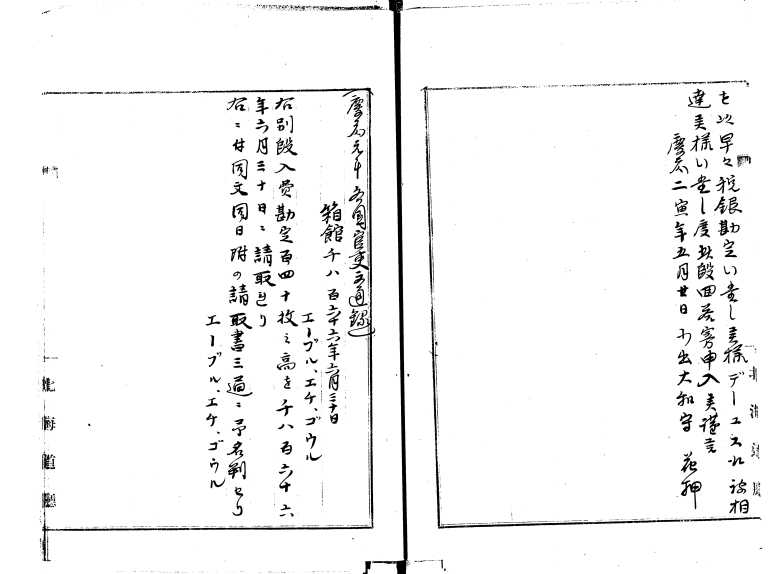 を以早々税銀勘定い楽し美様デーユスルに被相
達美様い楽し度此段回答旁申入美謹言
慶應二寅年五月廿日 小出大和守 花押
慶應元年 各国官吏文通録
箱館千八百六十六年六月三十日
エーブル、エケ、ゴウル
右別段入費勘定百四十枚之高を千八百六十六
年六月三十日ニ請取たり
右ニ付同文同日附の請取書三通ニ予名判せり
エーブル、エケ、ゴウル
北海道廳